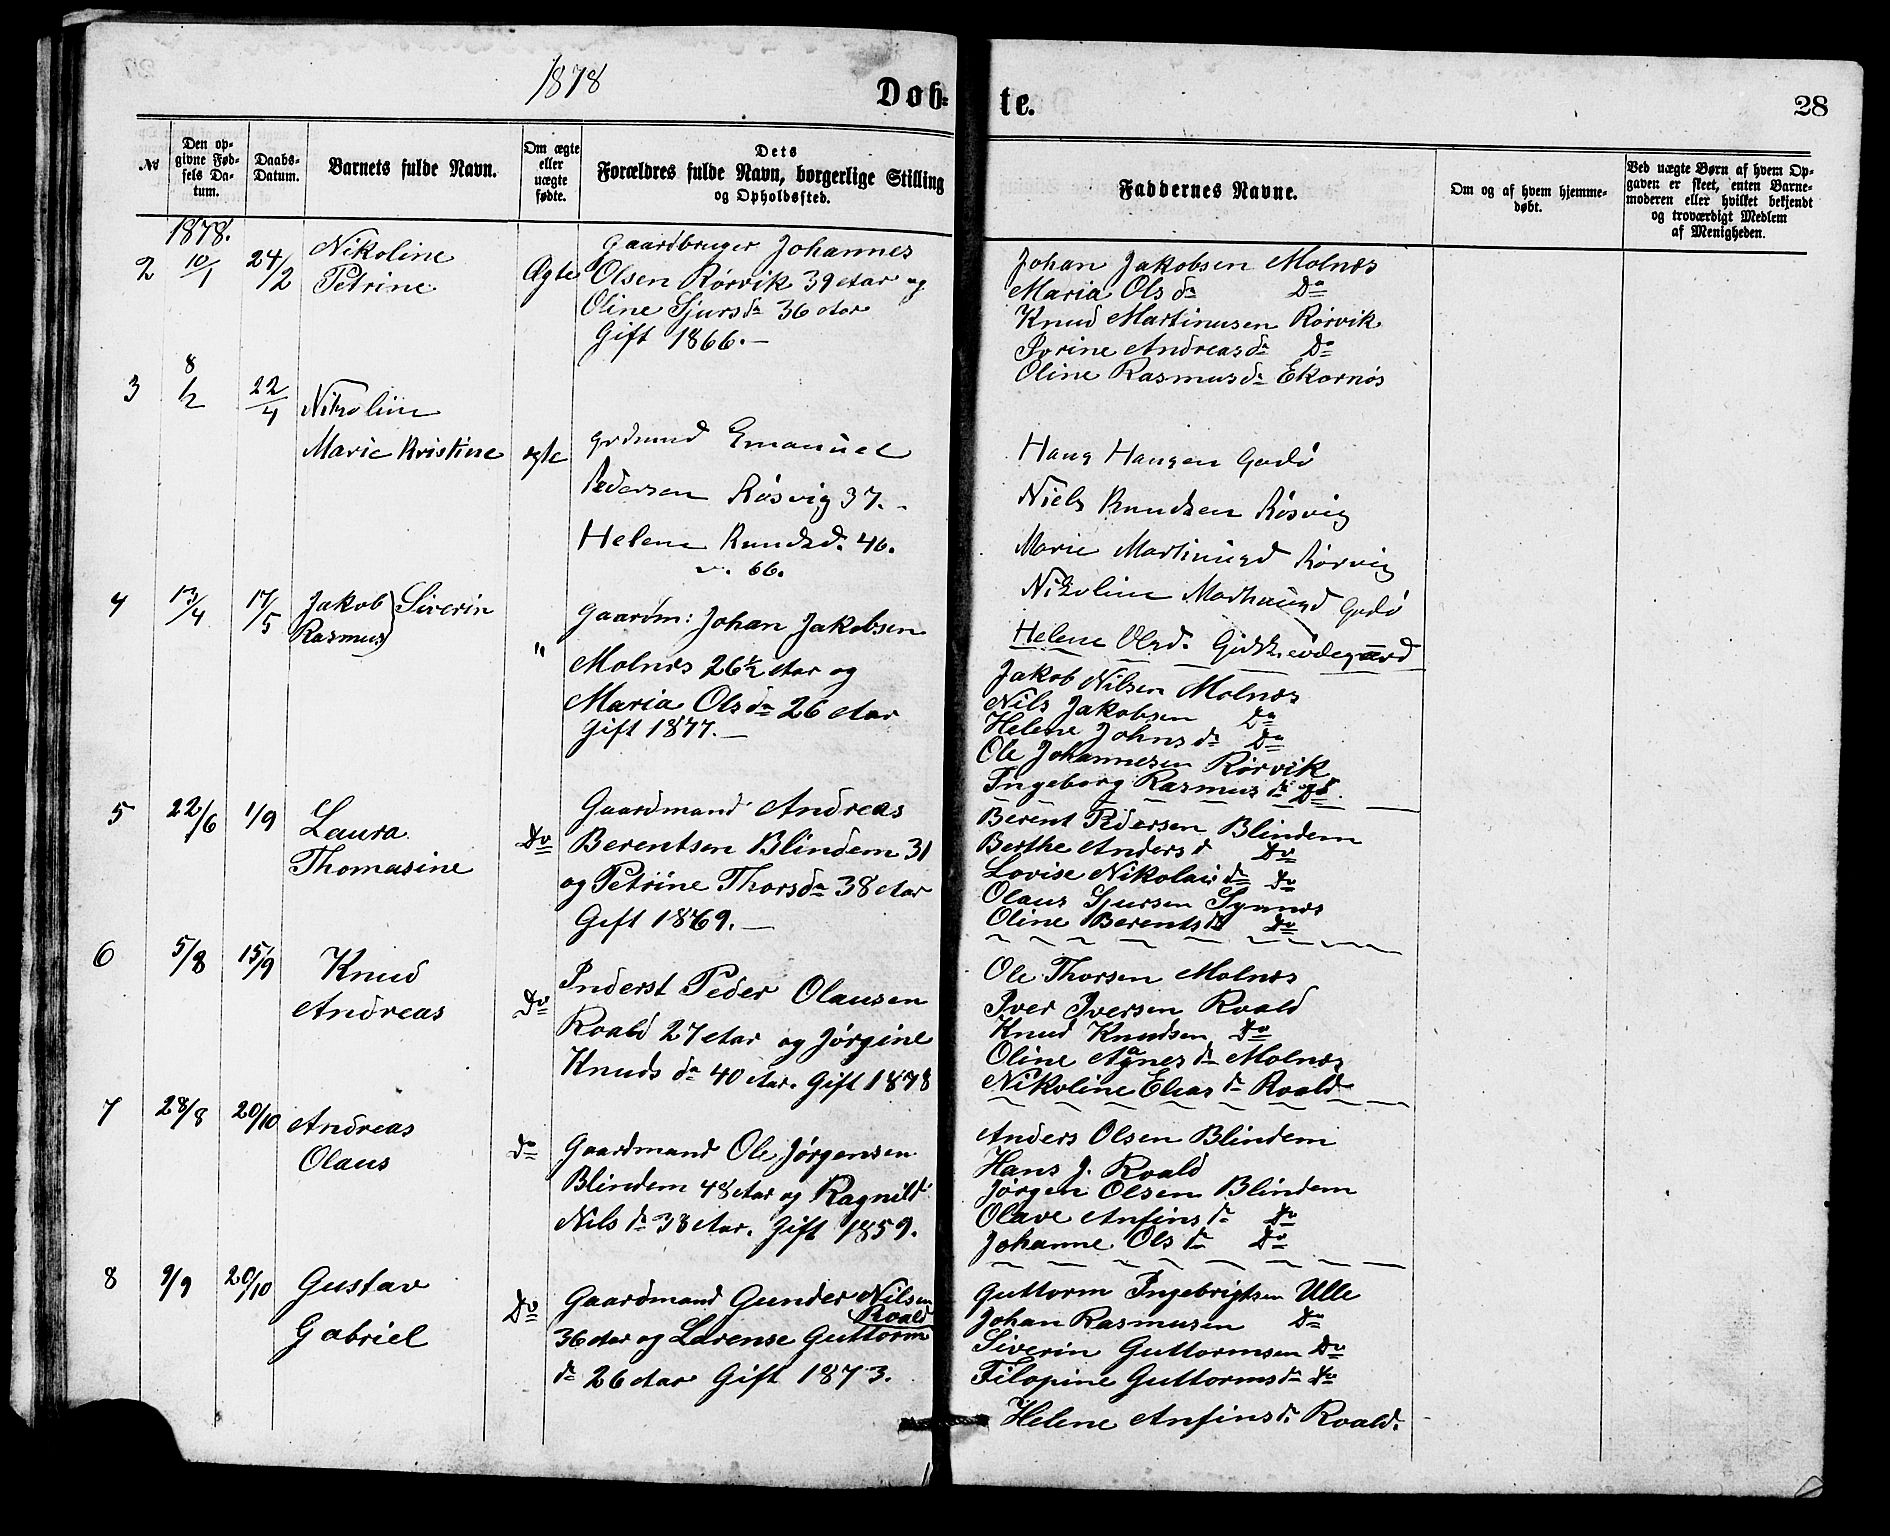 1878
Døb-
te.
28
No
Den op-
givne Fød-
sels Da-
tum.
Daabs-
Datum.
Barnets fulde Navn.
Om ægte
eller
uægte
fødte.
Dets
Forældres fulde Navn, borgerlige Stilling
og Opholdssted.
Faddernes Navne.
Om og af hvem hjemme-
døbt.
Ved uægte Børn af hvem Op-
gaven er skeet, enten Barne-
moderen eller hvilket bekjendt
og troværdigt Medlem
af Menigheden.
1878.
2 10/1 24/2
Nikoline
Petrine
Ægte
Gaardbruger Johannes
Olsen Rørvik 39 Aar og
Oline Sjursda 36 Aar
Gift 1866.—
Johan Jakobsen Molnæs
Maria Olsda Do
Knud Martinusen Rørvik
Ivrine Andreasda Do
Oline Rasmusda Ekornæs
3 8/2 22/4
Nikoline
Marie Kristine
ægte
Grdmnd Emanuel
Pedersen Røsvig 37.
Helene Knudsd. 46.
66.
Hans Hansen Godø
Niels Knudsen Røsvig
Marie Martinusd Rørvig
Nikoline Mathiasd Godø
Helene Olsd. Gidskeødegaard
4 13/4 17/5
Jakob } Siverin
Rasmus
"
Gaardm: Johan Jakobsen
Molnæs 26 1/2 Aar og
Maria Olsda 26 Aar
Gift 1877.—
Jakob Nilsen Molnæs
Nils Jakobsen Do
Helene Johnsda Do
Ole Johannesen Rørvik
Ingeborg Rasmusda Do.
5 22/6 1/9
Laura
Thomasine
Do
Gaardmand Andreas
Berentsen Blindem 31
og Petrine Thorsda 38 Aar
Gift 1869.—
Berent Pedersen Blindem
Berthe Andersd Do
Lovise Nikolaida Do
Olaus Sjursen Synnes
Oline Berentsda Do
6 5/8 15/9
Knud
Andreas
Do
Inderst Peder Olausen
Roald 27 Aar og Jørgine
Knudsda 40 Aar. Gift 1878
Ole Thorsen Molnæs
Iver Iversen Roald
Knud Knudsen Do
Oline Agnesda Molnæs
Nikoline Eliasda Roald
7 28/8 20/10
Andreas
Olaus
Do
Gaardmand Ole Jørgensen
Blindem 48 Aar og Ragnild
Nilsda 38 Aar. Gift 1859.
Anders Olsen Blindem
Hans J. Roald
Jørgen Olsen Blindem
Olave Anfinsda Do
Johanne Olsda Do
8 9/9 20/10
Gustav
Gabriel
Do
Gaardmand Gunder Nilsen
Roald
36 Aar og Lorense Guttorm
da 26 Aar Gift 1873.
Guttorm Ingebrigtsen Ulle
Johan Rasmusen Do
Siverin Guttormsen Do
Filopine Guttormsda Do
Helene Anfinsda Roald.